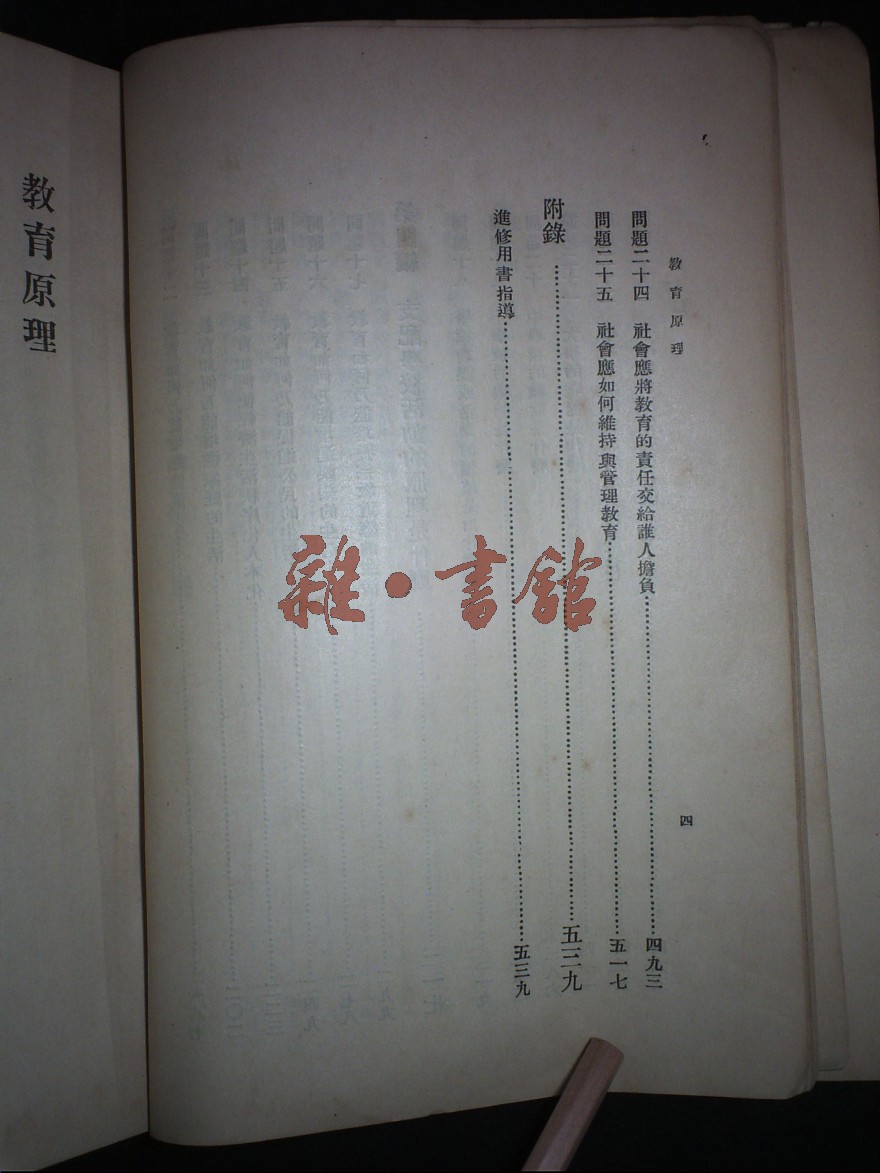 教育原理
四
問題二十四　社會應將教育的責任交給誰人擔負……四九三
問題二十五　社會應如何維持與管理教育……五一七
附錄……五三九
進修用書指導……五三九
教育原理
雜·書館